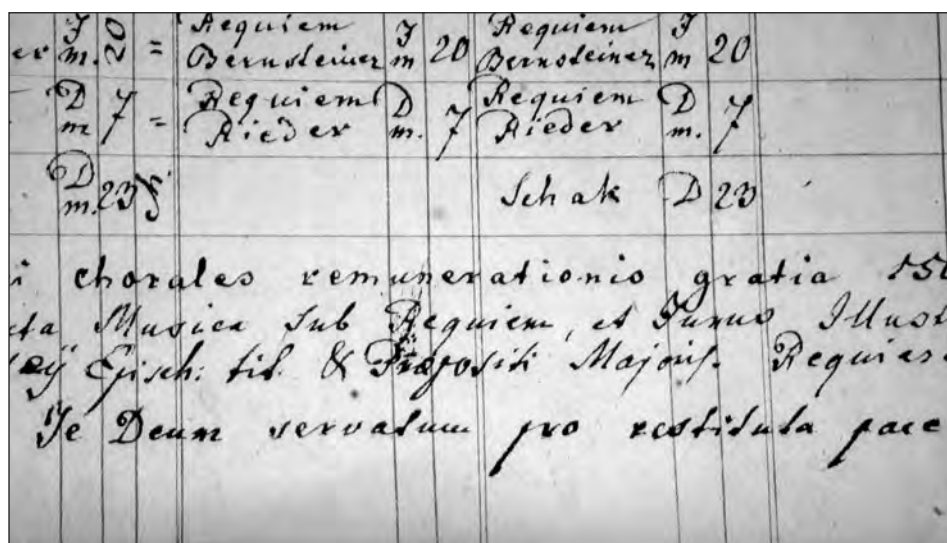 er m. 20 = Requiem F 20 Requiem F 20
Bernsteiner m Bernsteiner m
D 7 = Requiem D 7 Requiem D 7
m Rieder m. Rieder m.
D 23 Schak D 23
m.
i chorales remunerationis gratia 15
cta Musica sub Requiem, et Funus Illust
Episch: tit. & Præpositi Majoris. Requies
Te Deum servatum pro restituta pace